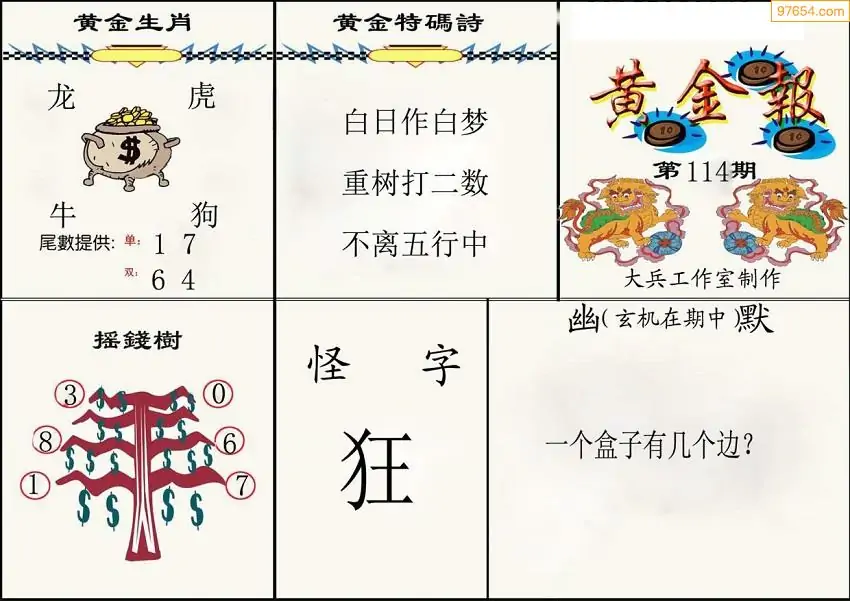 97654.com
黄金生肖
龙 虎
$
牛 狗
尾數提供: 单: 1 7
双: 6 4
黄金特碼詩
白日作白梦
重树打二数
不离五行中
黄金報
10
10
10
第114期
大兵工作室制作
摇錢樹
3 0
$ $ $ $
$ $ $ $
8 6
$ $ $ $
1 7
$ $ $ $
怪 字
狂
幽(玄机在期中)默
一个盒子有几个边?